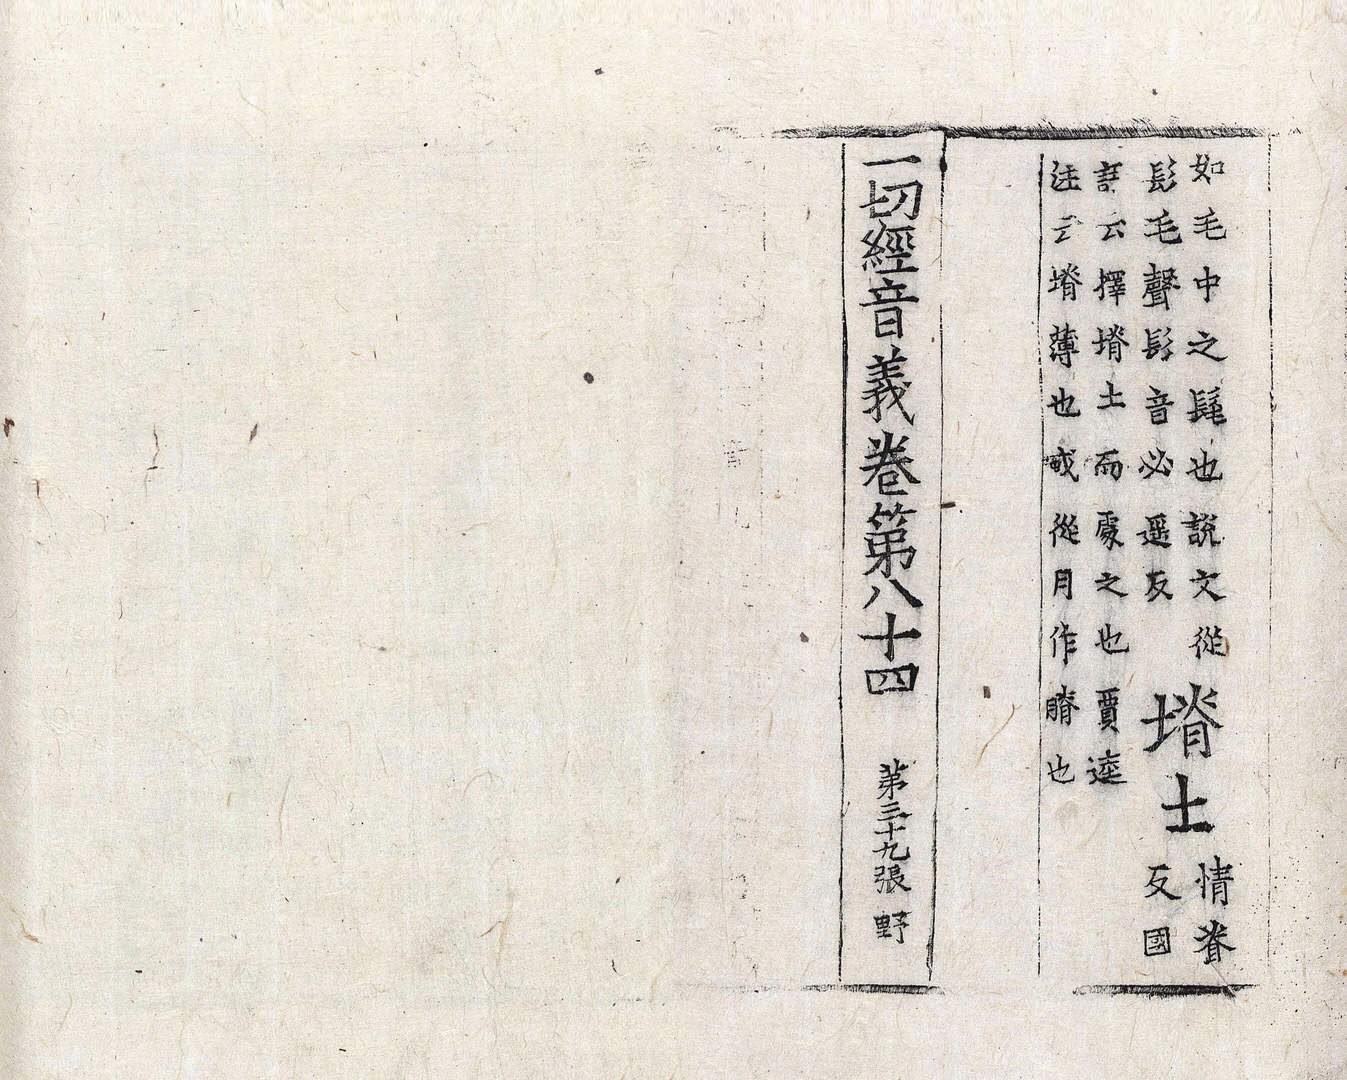 如毛中之髦也說文從
髟毛聲髟音必遥反
塉土
情脊
反國
語云擇塉土而處之也賈逵
注云塉薄也或從月作膌也
一切經音義卷第八十四 第三十九張 野